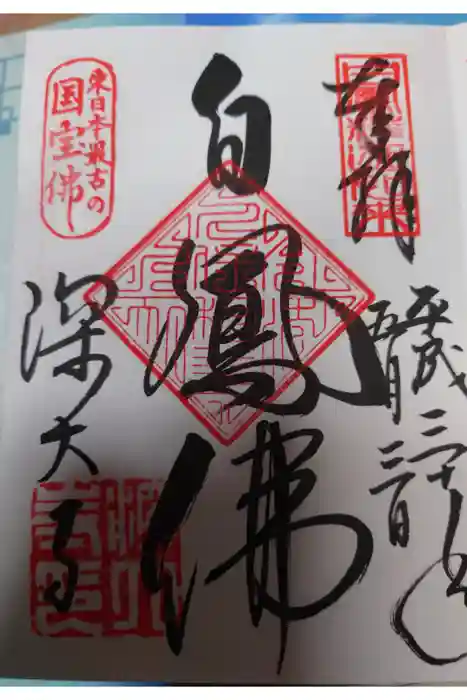 奉拝
平成三十年
五月三日
白鳳佛
東日本最古の
国宝佛
深大寺